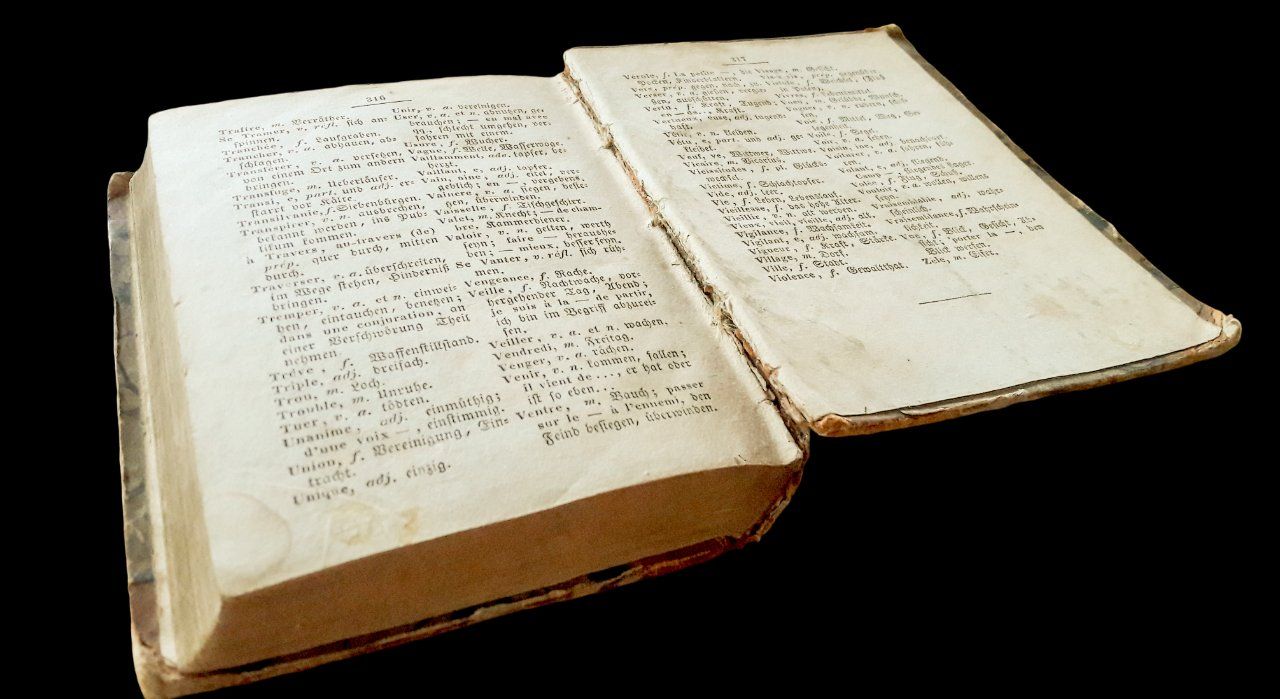 316
Traître, m. Verräther.
Se Tramer, v. réfl. sich an-
spinnen.
Tranchée, f. Laufgraben.
Trancher, v. a. abhauen, ab-
schlagen.
Transférer, v. a. versehen,
von einem Ort zum andern
bringen.
Transfuge, m. Ueberläufer.
Transi, e, part. und adj. er-
starrt vor Kälte.
Transilvanie, f. Siebenbürgen.
Transpirer, v. n. ausbrechen,
bekannt werden, ins Pub-
likum kommen.
à Travers, au-travers (de)
prép. quer durch, mitten
durch.
Traverser, v. a. überschreiten,
im Wege stehen, Hinderniß
bringen.
Tremper, v. a. et n. einwei-
hen, eintauchen, benetzen;
dans une conjuration, an
einer Verschwörung Theil
nehmen.
Trêve, f. Waffenstillstand.
Triple, adj. dreifach.
Trou, m. Loch.
Trouble, m. Unruhe.
Tuer, v. a. tödten.
Unanime, adj. einmüthig;
d'une voix —, einstimmig.
Union, f. Vereinigung, Ein-
tracht.
Unique, adj. einzig.
Unir, v. a. vereinigen.
User, v. a. et n. abnutzen, ge-
brauchen; — en mal avec
qn. schlecht umgehen, ver-
fahren mit einem.
Usure, f. Wucher.
Vague, f. Welle, Wasserwoge.
Vaillamment, adv. tapfer, be-
herzt.
Vaillant, e, adj. tapfer.
Vain, vaine, adj. eitel, ver-
geblich; en — vergebens.
Vaincre, v. a. siegen, besie-
gen, überwinden.
Vaisselle, f. Tischgeschirr.
Valet, m. Knecht; — de cham-
bre, Kammerdiener.
Valoir, v. n. gelten, werth
seyn; faire — heraushe-
ben; — mieux, besser seyn.
Se Vanter, v. réfl. sich rüh-
men.
Vengeance, f. Rache.
Veille, f. Nachtwache, vor-
hergehender Tag, Abend;
je suis à la — de partir,
ich bin im Begriff abzurei-
sen.
Veiller, v. a. et n. wachen.
Vendredi, m. Freitag.
Venger, v. a. rächen.
Venir, v. n. kommen, fallen;
il vient de..., er hat oder
ist so eben...
Ventre, m. Bauch; passer
sur le — à l'ennemi, den
Feind besiegen, überwinden.
317
Vérole, f. La petite —, die
Pocken, Kinderblattern.
Vers, prép. gegen, nach,
Verser, v. a. gießen, vergie-
ßen, ausschütten.
Vertu, f. Kraft, Tugend;
en — de.. Kraft.
Vertueux, euse, adj. tugend-
haft.
Vêtir, v. a. kleiden.
Vêtu, e, part. und adj. ge-
kleidet.
Veuf, ve, Wittwer, Wittwe.
Vicaire, m. Vicarius.
Vicissitudes, f. pl. Glücks-
wechsel.
Victime, f. Schlachtopfer.
Vide, adj. leer.
Vie, f. Leben, Lebenszeit.
Vieillesse, f. das hohe Alter.
Vieillir, v. n. alt werden.
Vieux, vieil, vieille, adj. alt.
Vigilance, f. Wachsamkeit.
Vigilant, e, adj. wachsam.
Vigueur, f. Kraft, Stärke.
Village, m. Dorf.
Ville, f. Stadt.
Violence, f. Gewaltthat.
Visage, m. Gesicht.
Vis-à-vis, prép. gegenüber
Voie, f. Mittel, Weg, Ge-
legenheit.
Voile, f. Segel.
Voir, v. a. sehen.
Voisin, ine, adj. benachbart.
Volant, e, adj. fliegend.
Camp —, fliegendes Lager.
Volée, f. Flug, Schuß.
Vouloir, v. a. wollen, Willens
seyn.
Vraisemblable, adj. wahr-
scheinlich.
Vraisemblance, f. Wahrschein-
lichkeit.
Vue, f. Blick, Gesicht, Ab-
sicht; porter la —, den
Blick werfen.
Zèle, m. Eifer.